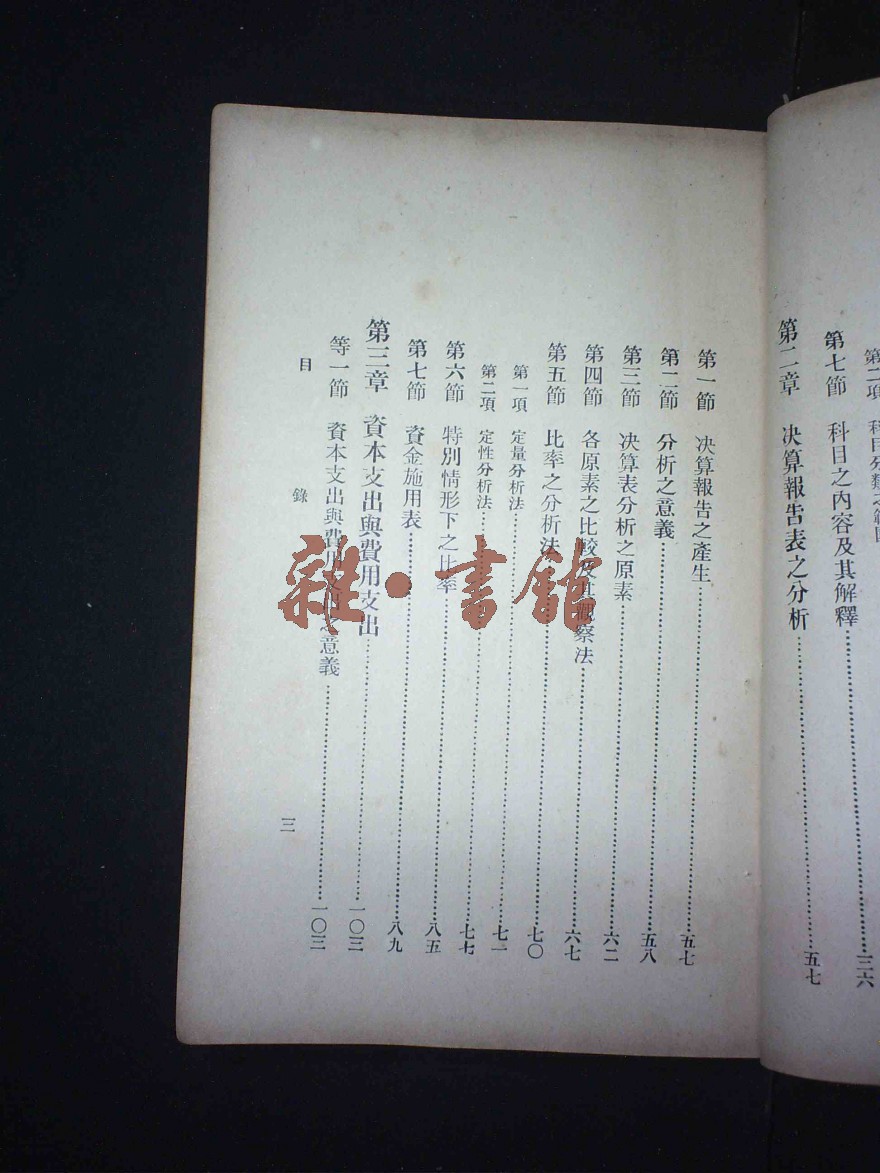 第二項 科目分類之範圍
第七節 科目之內容及其解釋……三六
第二章 決算報告表之分析……五七
第一節 決算報告之產生……五七
第二節 分析之意義……五八
第三節 決算表分析之原素……六二
第四節 各原素之比較及其觀察法……六七
第五節 比率之分析法……七〇
第一項 定量分析法……七一
第二項 定性分析法……七七
第六節 特別情形下之比率……八五
第七節 資金施用表……八九
第三章 資本支出與費用支出……一〇三
等一節 資本支出與費用支出之意義……一〇三
目錄 三
雜·書館